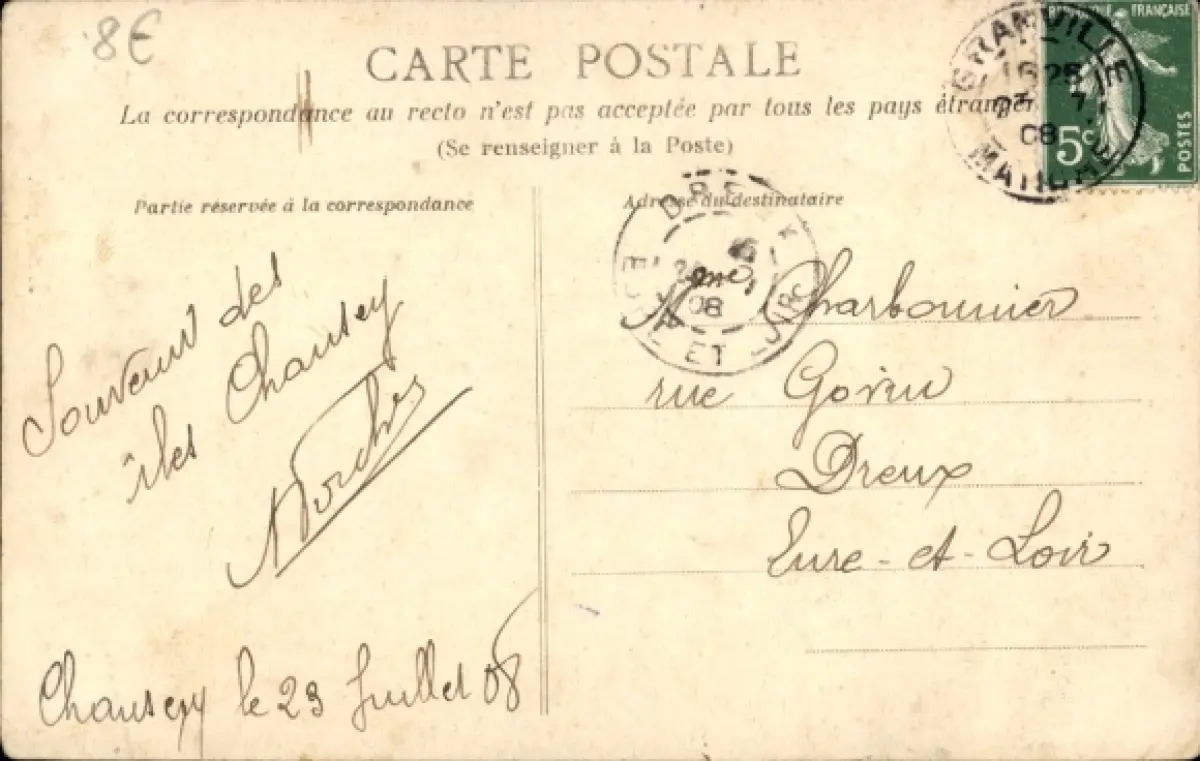 8€
CARTE POSTALE
La correspondance au recto n'est pas acceptée par tous les pays étrangers
(Se renseigner à la Poste)
RÉPUBLIQUE FRANÇAISE
5c
POSTES
GRANVILLE
16 25
23 7
08
MANCHE
Partie réservée à la correspondance
Adresse du destinataire
DREUX
08
EURE ET LOIR
Souvenir des
îles Chausey
Chausey le 23 Juillet 08
Mme Charbonnier
rue
Dreux
Eure-et-Loir